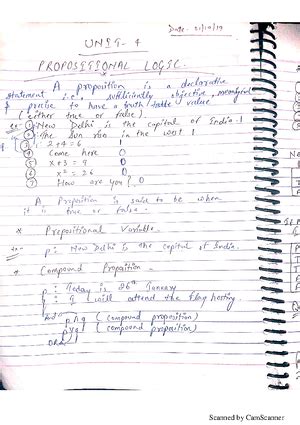 Date: 21/10/19
UNIT-4
PROPOSITIONAL LOGIC.
A proposition is a declarative
statement i.e. sufficiently objective, meaningful
& precise to have a truth table value
(either true or false).
ex- ① New Delhi is the capital of India. 1
② The sun rise in the west. 1
③ 2+4=6 1
④ Come here 0
⑤ x+3=9 0
⑥ x²=26 0
⑦ How are you? 0
A Proposition is said to be when
it is true or false.
* Prepositional Variable.
ex- p: New Delhi is the capital of India.
* Compound Proposition -
p: Today is 26th January
q: I will attend the flag hosting.
p∧q (compound proposition)
p∨q (compound proposition)
Scanned by CamScanner